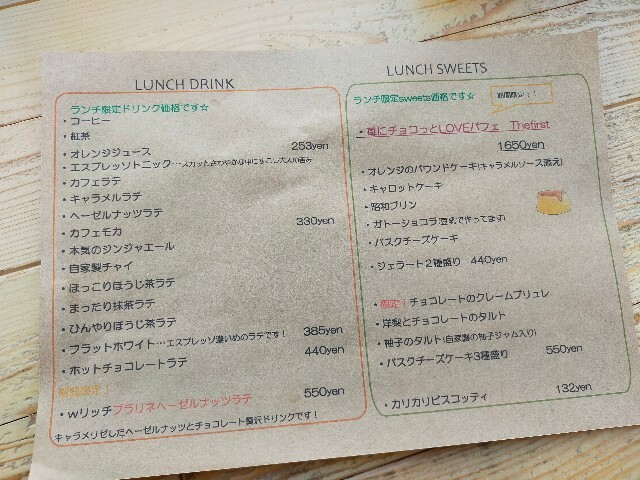 LUNCH DRINK
ランチ限定ドリンク価格です☆
・コーヒー
・紅茶
・オレンジジュース 253yen
・エスプレッソトニック…スカッとさわやかな中にほろ苦い大人の香り
・カフェラテ
・キャラメルラテ
・ヘーゼルナッツラテ 330yen
・カフェモカ
・本気のジンジャエール
・自家製チャイ
・ほっこりほうじ茶ラテ
・まったり抹茶ラテ
・ひんやりほうじ茶ラテ
・フラットホワイト…エスプレッソ濃いめのラテです! 385yen
・ホットチョコレートラテ 440yen
期間限定!
・wリッチプラリネヘーゼルナッツラテ 550yen
キャラメリゼしたヘーゼルナッツとチョコレート贅沢ドリンクです!
LUNCH SWEETS
ランチ限定sweets価格です☆
期間限定!!
・苺にチョコっとLOVEパフェ Thefirst
1650yen
・オレンジのパウンドケーキ(キャラメルソース添え)
・キャロットケーキ
・昭和プリン
・ガトーショコラ(豆乳で作ってます)
・バスクチーズケーキ
・ジェラート2種盛り 440yen
・限定!チョコレートのクレームブリュレ
・洋梨とチョコレートのタルト
・柚子のタルト(自家製の柚子ジャム入り)
・バスクチーズケーキ3種盛り 550yen
・カリカリビスコッティ 132yen